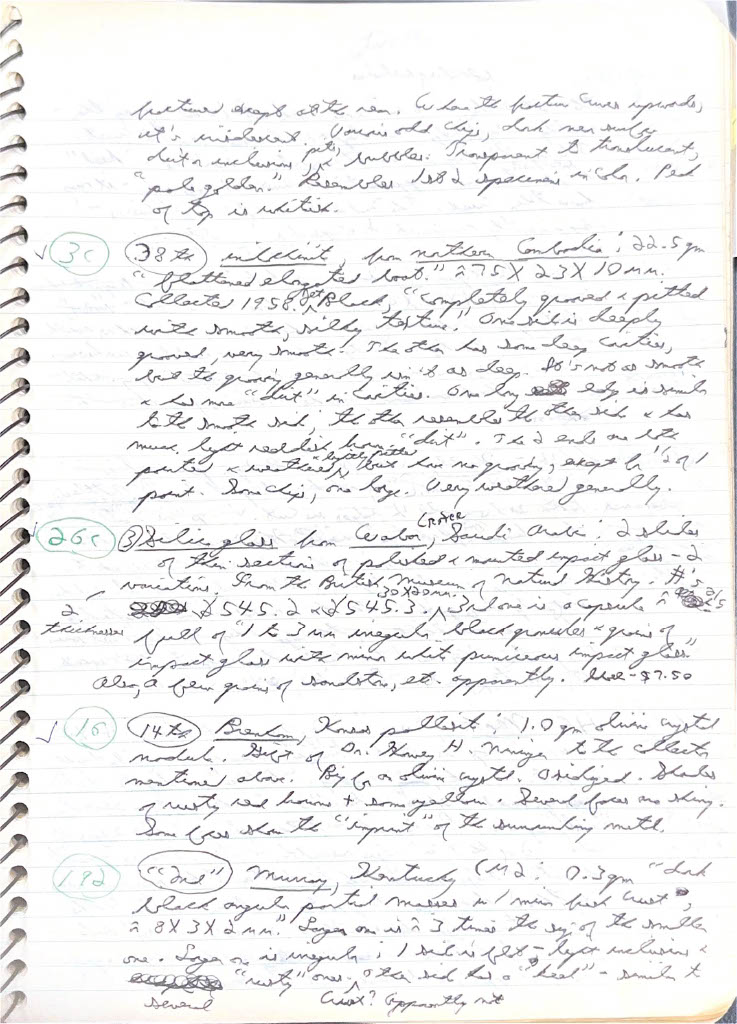 fracture except at the rear. Where the fracture curves upwards,
it's iridescent. Various odd chips, dark
dirt or inclusions, pits, & bubbles. Transparent to translucent,
"pale golden." Resembles 1st 2 specimens in color. Part
of top is whitish.
✓ 3c 38th indochinite, from northern Cambodia; 22.5 gm
"flattened elongated boat." ≈ 75 X 23 X 10 mm.
Collected 1958. Jet Black, "completely grooved & pitted
with smooth, silky texture." One side is deeply
grooved, very smooth. The other has some deep cavities,
but the grooving generally isn't as deep. It's not as smooth
& has more "dirt" in cavities. One long edge is similar
to the smooth side, the other resembles the other side & has
much light reddish brown "dirt". The 2 ends are both
pointed & weathered, & lightly pitted but have no grooving, except for ½ of 1
point. Some chips, one large. Very weathered generally.
26c 3 Silica glass from Wabar Crater, Saudi Arabia; 2 slides
of thin sections of polished & mounted impact glass - 2
varieties. From the British Museum of Natural History. #'s
2 thicknesses
2545.2 & 2545.3, 30X20mm. 3rd one is a capsule ≈
full of "1 to 3 mm irregular black granules & grains of
impact glass with minor white pumiceous impact glass"
Also, a few grains of sandstone, etc. apparently. $7.50
✓ 16 14th Brenham, Kansas pallasite; 1.0 gm olivine crystal
nodule. Gift of Dr. Harvey H. Nininger to the collector
mentioned above. Big for an olivine crystal. Oxidized. Shades
of rusty red brown + some yellow. Several faces are shiny.
Some faces show the "imprint" of the surrounding metal.
19d "2nd" Murray, Kentucky CM2; 0.3 gm "dark
black angular partial masses w/ minor fresh crust",
≈ 8 X 3 X 2 mm." Larger one is ≈ 3 times the size of the smaller
one. Larger one is irregular; 1 side is flat - light inclusions &
several "rusty" ones. Other side has a "bead" - similar to
crust? Apparently not